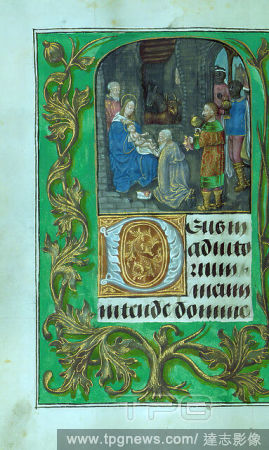 Deus in
adiuto
rium
meum
intende domine
TPG
www.tpgnews.com/ 達志影像